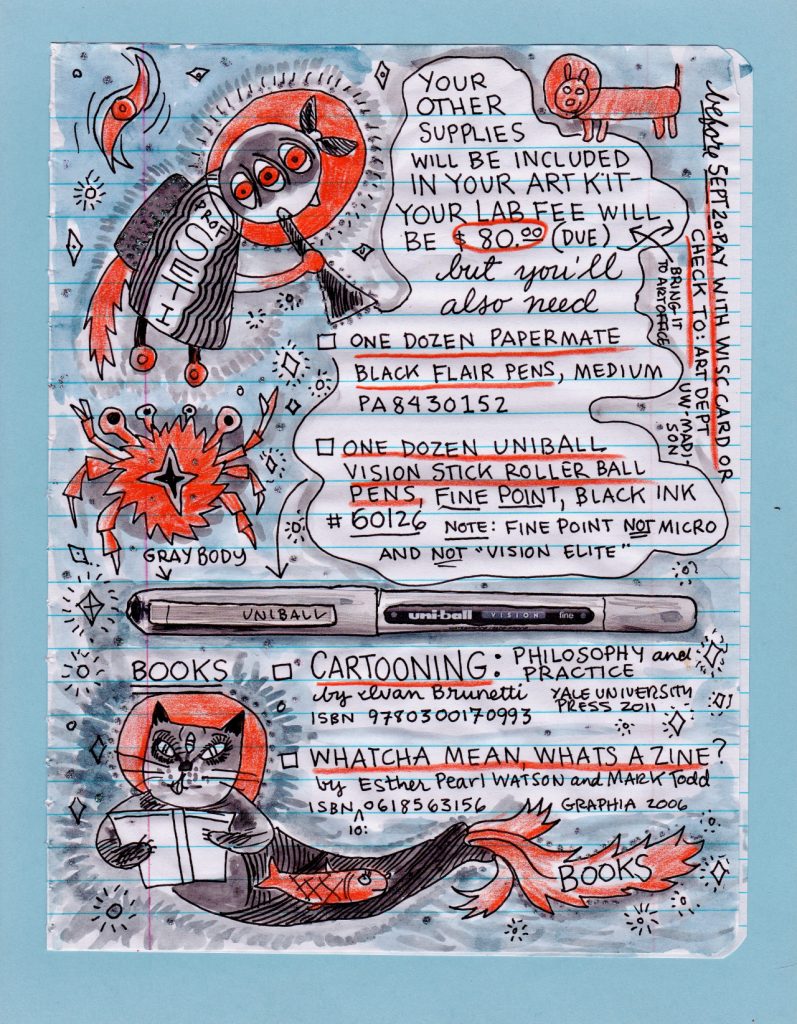 YOUR
OTHER
SUPPLIES
WILL BE INCLUDED
IN YOUR ART KIT-
YOUR LAB FEE WILL
BE $80.00 (DUE)
but you'll
also need
before SEPT 20. PAY WITH WISC CARD OR
CHECK TO: ART DEPT
UW-MADI-
SON
BRING IT
TO ART OFFICE
PROF
SETI
ONE DOZEN PAPERMATE
BLACK FLAIR PENS, MEDIUM
PA8430152
ONE DOZEN UNIBALL
VISION STICK ROLLER BALL
PENS, FINE POINT, BLACK INK
# 60126 NOTE: FINE POINT NOT MICRO
AND NOT "VISION ELITE"
GRAY BODY
UNIBALL
uni-ball VISION fine
BOOKS
CARTOONING: PHILOSOPHY and
PRACTICE
by Ivan Brunetti YALE UNIVERSITY
PRESS 2011
ISBN 9780300170993
WHATCHA MEAN, WHATS A ZINE?
by Esther Pearl WATSON and MARK Todd
ISBN 0618563156 GRAPHIA 2006
10:
BOOKS